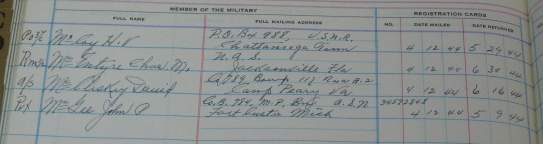 MEMBER OF THE MILITARY
REGISTRATION CARDS
FULL NAME
FULL MAILING ADDRESS
NO.
DATE MAILED
DATE RETURNED
McCay H. P.O. Box 888, U.S.N.R.
Chattanooga Tenn 4 12 44 5 29 44
McEntire Chas. M. N.A.S.
Jacksonville Fla 4 12 44 6 30 44
McCluskey David
Camp Peary Va 4 12 44 6 16 44
Pvt McGee John P Co. B. 784, M.P. Bn, A.S.N 34572868
Fort Custer Mich 4 12 44 5 9 44